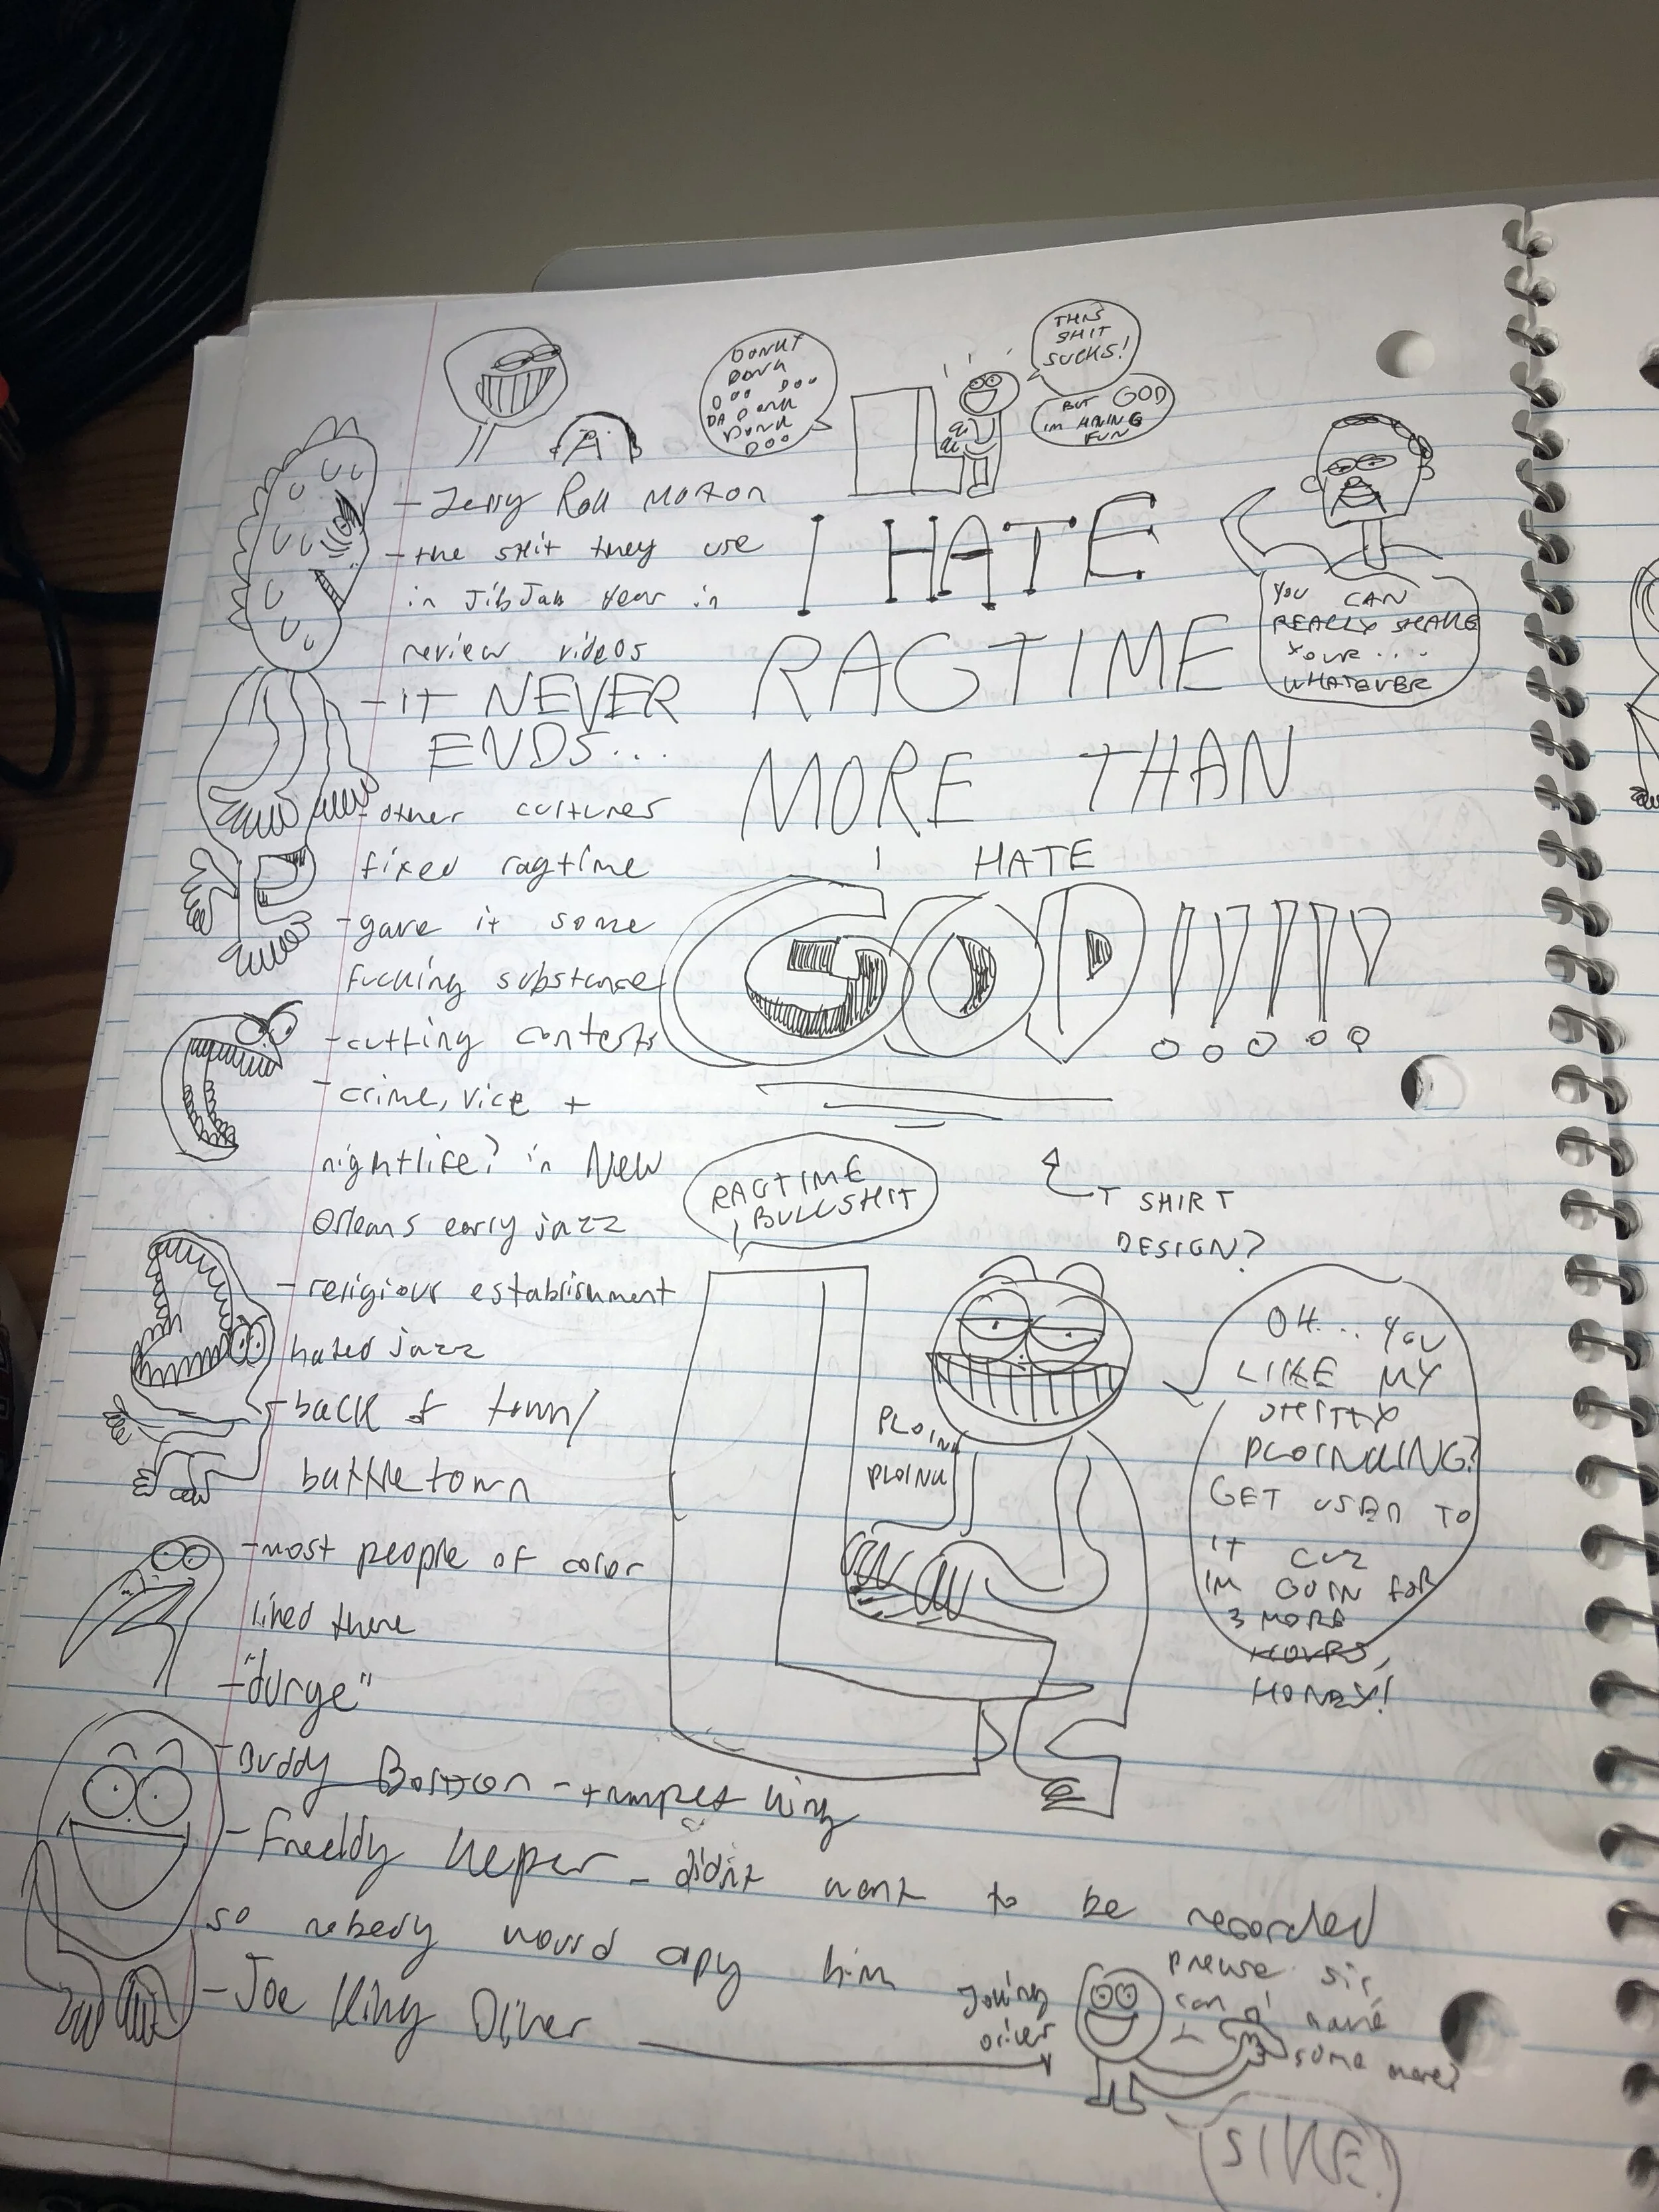 DONKY
DONK
DOO DOO
DA DONK
DONK
DOO
THIS
SHIT
SUCKS!
BUT GOD
IM HAVING
FUN
A
- Jerry Roll Morton
- the shit they use
in JibJab Year in
review videos
- IT NEVER
ENDS...
- other cultures
fixed ragtime
- gave it some
fucking substance
- cutting contests
- crime, vice +
nightlife? in New
Orleans early jazz
- religious establishment
hated jazz
- back of town/
battletown
- most people of color
lined there
- "durge"
- Buddy Bolden - trumpet king
- Freddy Keper - didnt want to be recorded
so nobody would copy him
- Joe King Oliver
I HATE
RAGTIME
MORE THAN
I HATE
GOD!!!!!
YOU CAN
REALLY SHAKE
YOUR....
WHATEVER
T SHIRT
DESIGN?
RAGTIME
BULLSHIT
PLOINK
PLOINK
OH... YOU
LIKE MY
SHITTY
PLOINKING?
GET USED TO
IT CUZ
IM GOIN FOR
3 MORE
HOURS,
HONEY!
Joking
oliver
please sir,
can I have
some more?
SIKE!